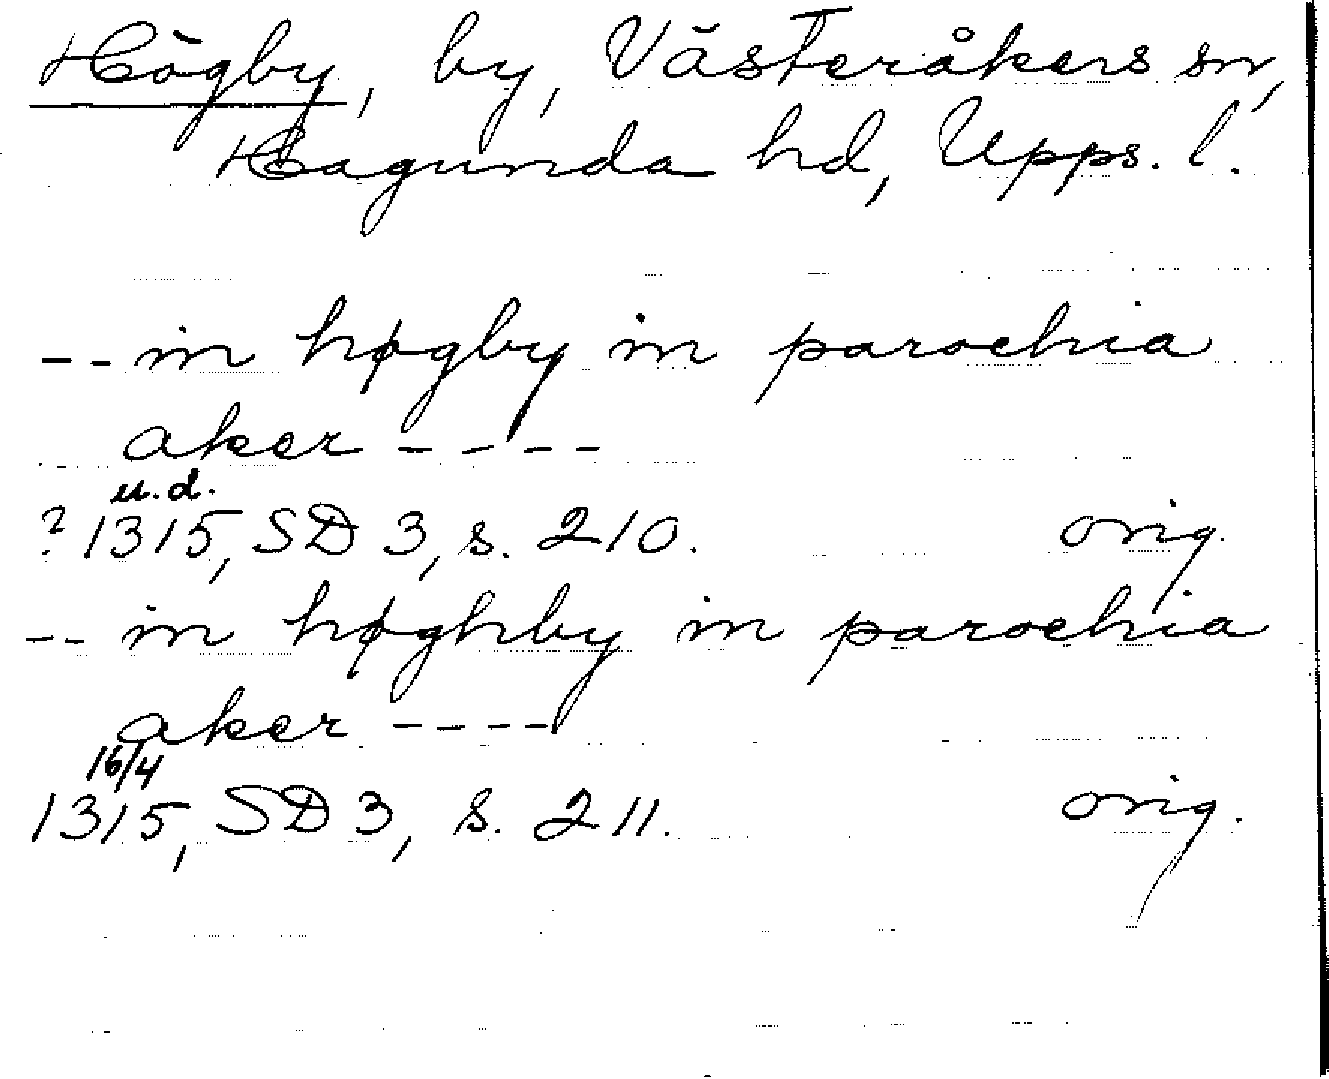 Högby, by, Västeråkers sn,
Hagunda hd, Upps. l.
-- in høgby in parochia
aker ----
u.d.
? 1315, SD 3, s. 210. orig.
-- in høghby in parochia
aker ----
16/4
1315, SD 3, s. 211. orig.